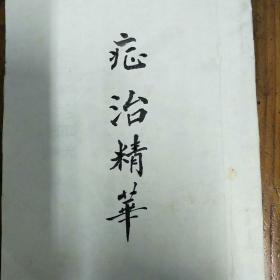 症治精華